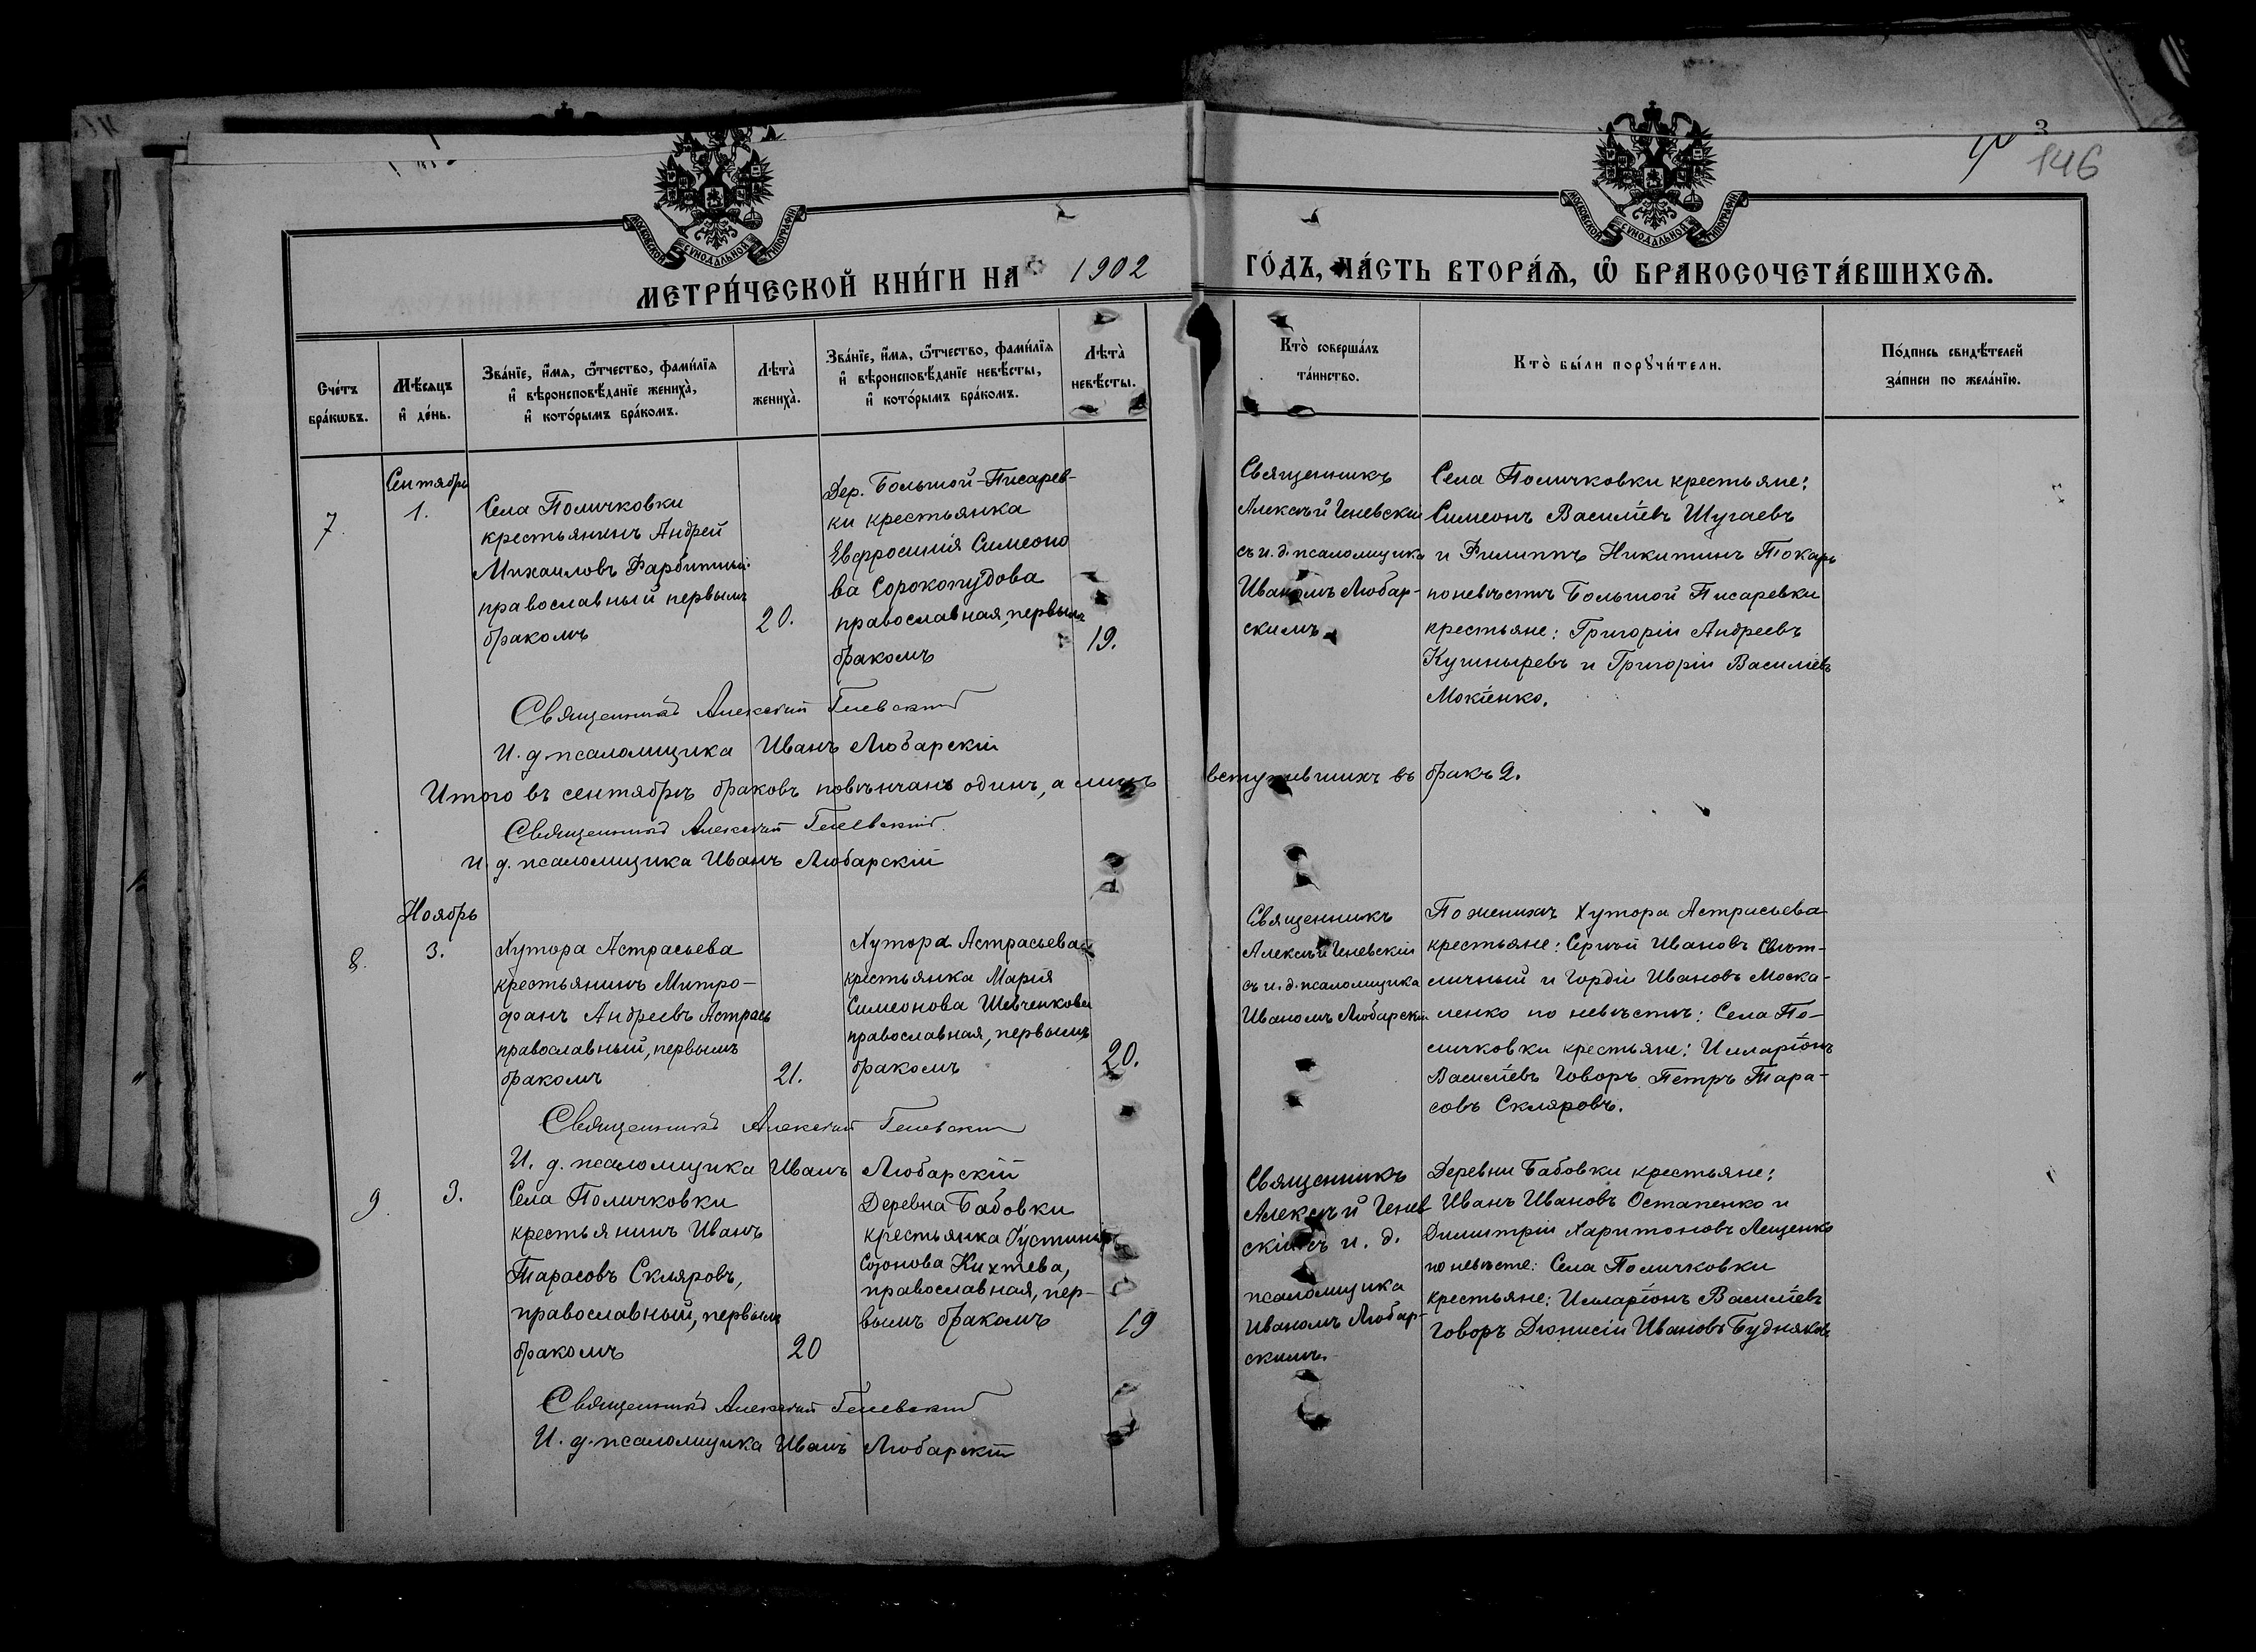 3
146
МОСКОВСКОЙ СѴНОДАЛЬНОЙ ТИПОГРАФІИ
МОСКОВСКОЙ СѴНОДАЛЬНОЙ ТИПОГРАФІИ
МЕТРИ́ЧЕСКОЙ КНИ́ГИ НА 1902 ГО́ДЪ, ЧА́СТЬ ВТОРА́Ѧ, Ѡ БРАКОСОЧЕТА́ВШИХСѦ.
Сче́тъ
бра́кѡвъ.
Мѣ́сѧцъ
и҆ де́нь.
Зва́нїе, и҆́мѧ, ѻ҆́тчество, фами́лїѧ
и҆ вѣроисповѣ́данїе жениха̀,
и҆ кото́рымъ бра́комъ.
Лѣта̀
жениха̀.
Зва́нїе, и҆́мѧ, ѻ҆́тчество, фами́лїѧ
и҆ вѣроисповѣ́данїе невѣ́сты,
и҆ кото́рымъ бра́комъ.
Лѣта̀
невѣ́сты.
Кто̀ соверша́лъ
та́инство.
Кто̀ бы́ли порꙋчи́тели.
По́дпись свидѣ́телей
за́писи по жела́нїю.
7.
Сентябрь
1.
Села Поличковки
крестьянинъ Андрей
Михаиловъ
православный первымъ
бракомъ
20.
Дер. Большой-Писарев-
ки крестьянка
Евфросинія Симеоно
ва Сорокопудова
православная, первымъ
бракомъ
19.
Священникъ
Алексѣй Геневскій
съ и. д. псаломщика
Иваномъ Любар-
скимъ
Села Поличковки крестьяне:
Симеонъ Василіевъ Шугаевъ
и Филиппъ Никитинъ Токарь
по невѣстѣ Большой Писаревки
крестьяне: Григорій Андреевъ
Кушныревъ и Григорій Василіевъ
Мокіенко.
Священникъ Алексѣй Геневскій
И. д. псаломщика Иванъ Любарскій
Итого въ сентябрѣ браковъ повѣнчанъ одинъ, а лицъ вступившихъ въ бракъ 2.
Священникъ Алексѣй Геневскій
И. д. псаломщика Иванъ Любарскій
8.
Ноябрь
3.
Хутора Астрасьева
крестьянинъ Митро-
фанъ Андреевъ Астрась
православный, первымъ
бракомъ
21.
Хутора Астрасьева
крестьянка Марія
Симеонова Шевченкова
православная, первымъ
бракомъ
20.
Священникъ
Алексѣй Геневскій
съ и. д. псаломщика
Иваномъ Любарскій
По женихѣ Хутора Астрасьева
крестьяне: Сергѣй Ивановъ Свѣт-
личный и Гордій Ивановъ Моска-
ленко по невѣстѣ: Села По-
личковки крестьяне: Илларіонъ
Василіевъ Говоръ Петръ Тара-
совъ Скляровъ.
Священникъ Алексѣй Геневскій
И. д. псаломщика Иванъ Любарскій
9.
3.
Села Поличковки
крестьянинъ Иванъ
Тарасовъ Скляровъ,
православный, первымъ
бракомъ
20
Деревна Бабовки
крестьянка
Созонова Кихтева,
православная, пер-
вымъ бракомъ
19
Священникъ
Алексѣй Генев
скій съ и. д.
псаломщика
Иваномъ Любар-
скимъ.
Деревни Бабовки крестьяне:
Иванъ Ивановъ Остапенко и
Димитрій Харитоновъ Лещенко
по невѣсте: Села Поличковки
крестьяне: Илларіонъ Василіевъ
Говоръ Діонисій Ивановъ Будняковъ
Священникъ Алексѣй Геневскій
И. д. псаломщика Иванъ Любарскій